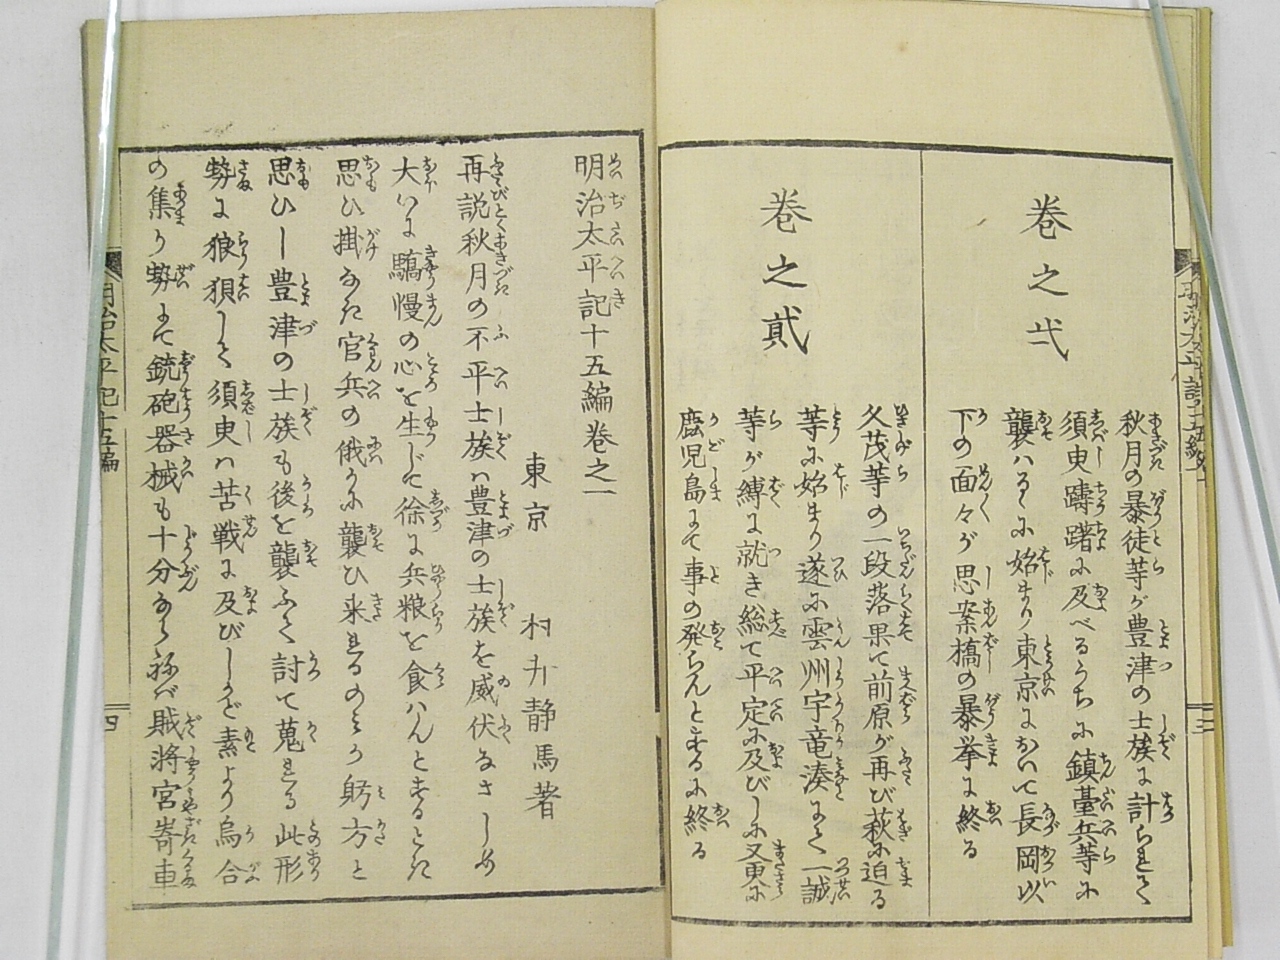 巻之弌
秋月の暴徒等が豊津の士族に計られて
須臾躊躇に及べるうちに鎮臺兵等に
襲はるゝに始まり東京に於いて長岡以
下の面々が思案橋の暴挙に終る
巻之貳
久茂等の一段落果て前原が再び萩に迫る
等に始まり遂に雲州宇竜湊にて一誠
等が縛に就き総て平定に及びしに又更に
鹿児島にて事の発らんとするに終る
明治太平記十五編巻之一
東京 村井静馬著
再説秋月の不平士族は豊津の士族を威伏なさしめ
大いに驕慢の心を生じて徐に兵粮を食はんとするとき
思ひ掛なき官兵の俄かに襲ひ来るのみか躬方と
思ひし豊津の士族も後を襲ふて討て蒐る此形
勢に狼狽して須臾は苦戦に及びしかど素より烏合
の集り勢にて銃砲器械も十分ならねば賊將宮嵜車
明治太平記十五編
四